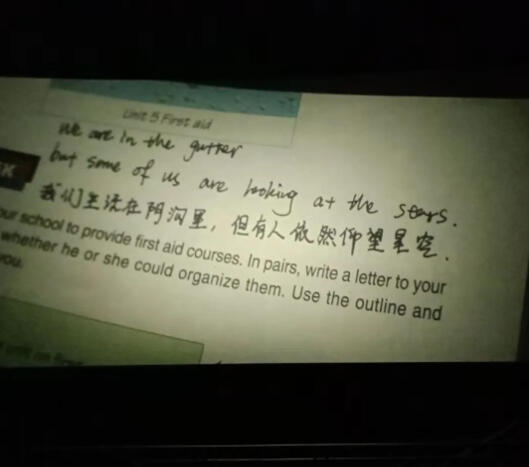 Unit 5 First aid
We are in the gutter
but some of us are looking at the stars.
我们生活在阴沟里，但有人依然仰望星空.
our school to provide first aid courses. In pairs, write a letter to your
whether he or she could organize them. Use the outline and
you.